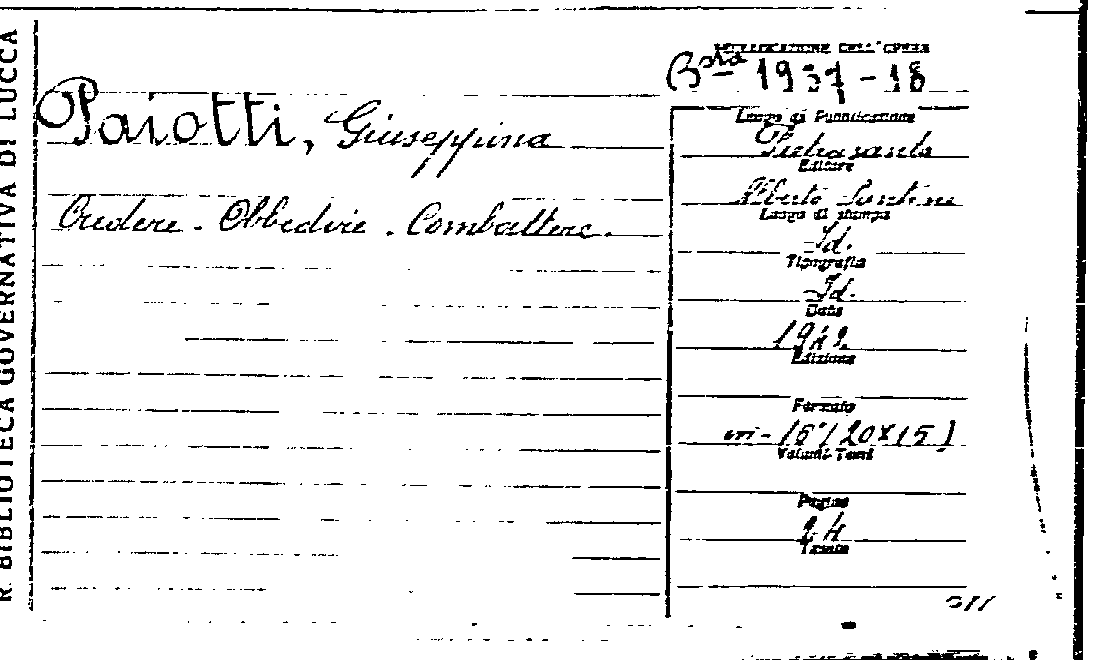 R. BIBLIOTECA GOVERNATIVA DI LUCCA
COLLOCAZIONE DELL'OPERA
Bsta 1937-18
Paiotti, Giuseppina
Credere. Obbedire. Combattere.
Luogo di Pubblicazione
Pietrasanta
Editore
Alberto Santini
Luogo di stampa
Id.
Tipografia
Id.
Data
Edizione
Formato
in-16°/20x15)
Volumi-Tomi
Pagine
24